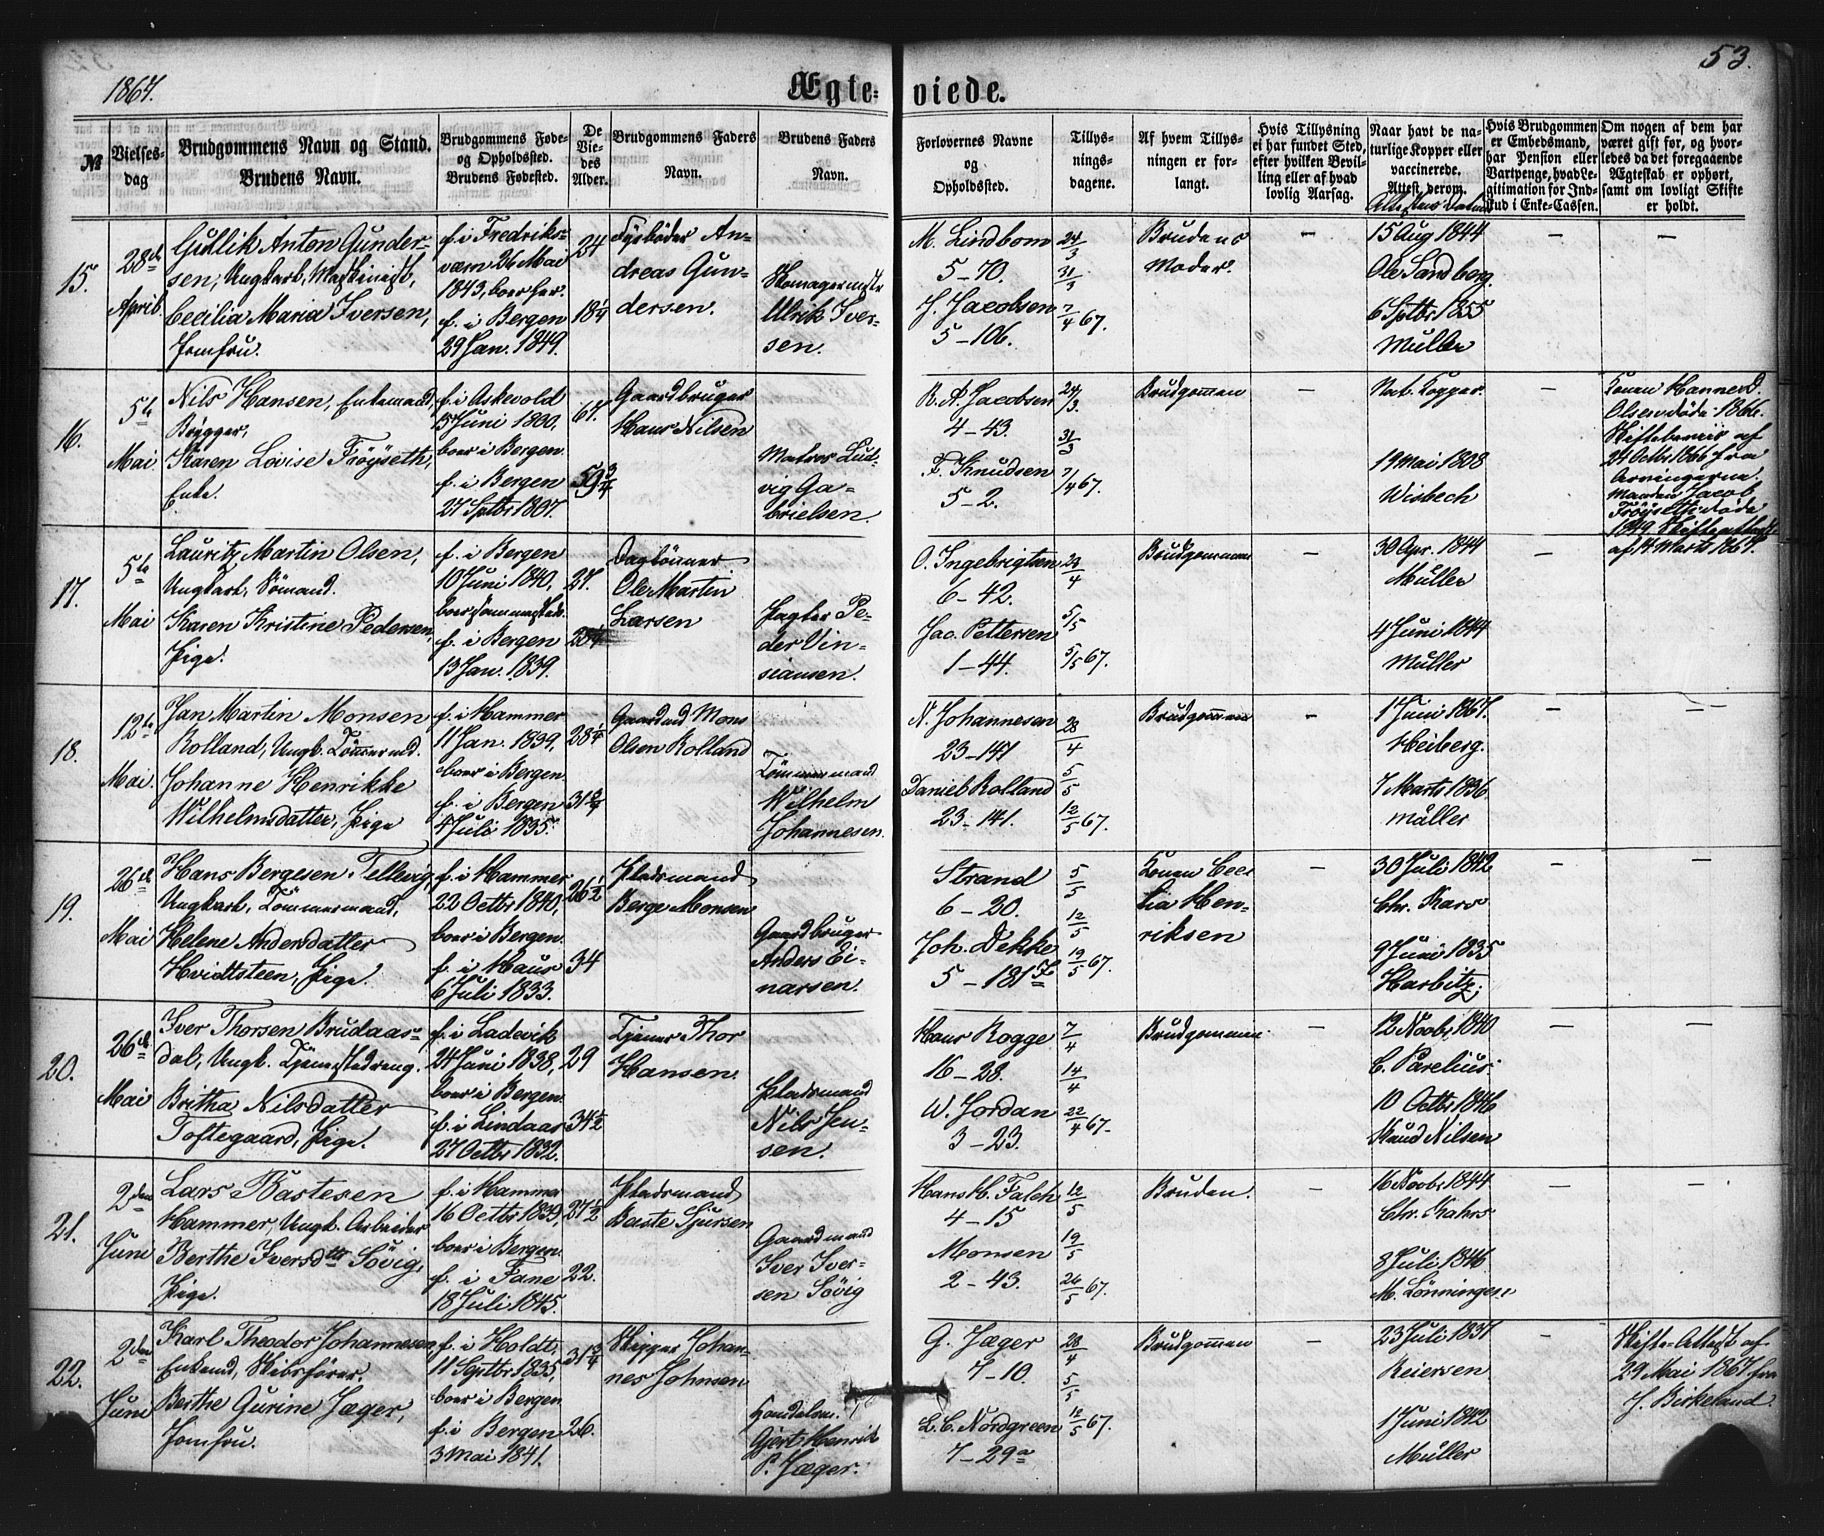 1867.
Ægte-
viede.
53.
№
Vielses-
dag
Brudgommens Navn og Stand.
Brudens Navn.
Brudgommens Føde-
og Opholdssted.
Brudens Fødested.
De
Vie-
des
Alder.
Brudgommens Faders
Navn.
Brudens Faders
Navn.
Forlovernes Navne
og
Opholdssted.
Tillys-
nings-
dagene.
Af hvem Tillys-
ningen er for-
langt.
Hvis Tillysning
ei har fundet Sted,
efter hvilken Bevil-
ling eller af hvad
lovlig Aarsag.
Naar havt de na-
turlige Kopper eller
vaccinerede.
Attest derom.
Hvis Brudgommen
er Embedsmand,
har Pension eller
Vartpenge, hvad Le-
gitimation for Ind-
skud i Enke-Cassen.
Om nogen af dem har
været gift før, og hvor-
ledes da det foregaaende
Ægteskab er ophørt,
samt om lovligt Skifte
er holdt.
15.
28de
April
Gullik Anton Gunder-
sen, Ungkarl, Maskinist,
Cecilia Maria Iversen,
Jomfru.
f. i Fredriks-
værn 26 Mai
1843, boer her.
f. i Bergen
29 Jan. 1849.
24
18 1/4
Fyrbøder An-
dreas Gun-
dersen.
Skomagermester
Ulrik Iver-
sen.
M. Lindbom
5-70.
J. Jacobsen
5-106.
24/3
31/3
7/4 67.
Brudens
Moder.
—
15 Aug 1844
Ole Sandberg.
6 Sptbr 1855
Müller
—
—
16.
5te
Mai
Nils Hansen, Enkemand,
Brygger,
Karen Lovise Frøyseth,
Enke.
f. i Askevold
5 Juni 1800.
boer i Bergen.
f. i Bergen
27 Sptbr 1807.
67.
59 3/4
Gaardbruger
Hans Nilsen
Matros Lud-
vig Ga-
brielsen.
R. A. Jacobsen
4-43.
F. Knudsen
5-2.
24/3.
31/3
7/4 67.
Brudgommen
—
Nat. Kopper.
19 Mai 1808
Wisbech
—
Konen Hanne D.
Olsen døde 1866.
Skiftebeviis af
24 Octbr 1866 fra
Arvingerne.
Manden Jacob
Frøyseth døde
1849. Skifteattest
af 14 Marts 1867.
17.
5te
Mai
Lauritz Martin Olsen,
Ungkarl, Sømand.
Karen Kristine Pedersen,
Pige.
f. i Bergen
10 Juni 1840,
boer sammesteds.
f. i Bergen
13 Jan. 1839.
27.
28 1/4
Daglønner
Ole Martin
Larsen
Fagter Pe-
der Vin-
siansen.
O. Ingebrigtsen
6-42.
Jac. Pettersen
1-44.
28/4
5/5
5/5 67.
Brudgommen
—
30 Apr. 1844
Müller
4 Juni 1844
Müller
—
18.
12te
Mai.
Jan Martin Monsen
Rolland, Ungk. Tømmermd.
Johanne Henrikke
Wilhelmsdatter, Pige
f. i Hammer
11 Jan. 1839.
boer i Bergen.
f. i Bergen
4 Juli 1835.
28 1/4
31 3/4
Gaardmd Mons
Olsen Rolland
Tømmermand
Wilhelm
Johannesen.
N. Johannesen
23-147
Daniel Rolland
23-141.
28/4
5/5
12/5 67.
Brudgommen
—
1 Juni 1867.
Heiberg.
7 Marts 1836
Müller
—
—
19.
26de
Mai
Hans Bergesen Tellevig,
Ungkarl, Tømmermand,
Helene Andersdatter
Hvidtsteen, Pige.
f. i Hammer
22 Octbr 1840,
boer i Bergen.
f. i Haus
6 Juli 1833.
26 1/2
34
Pladsmand
Berge Monsen
Gaardbruger
Anders Ei-
narsen.
Strand
6-20.
Joh. Dekke
5-181
5/5
12/5
19/5 67.
Konen Ceci-
lia Hen-
riksen
—
30 Juli 1842
Chr. Kars
9 Juni 1835
Harbitz.
—
—
20.
26de
Mai
Iver Thorsen Brudaas-
dal, Ungk. Tjenestedreng.
Britha Nilsdatter
Toftegaard, Pige.
f. i Ladevik
24 Juni 1838,
boer i Bergen.
f. i Lindaas
27 Octbr 1832.
29
34 1/2
Tjener Thor
Hansen.
Pladsmand
Nils Jen-
sen.
Hans Rogge
16-28.
W. Jordan
3-23.
7/4
14/4
22/4 67.
Brudgommen.
—
12 Novbr 1840
C. Parelius.
10 Octbr 1846
Knud Nilsen
—
—
21.
2den
Juni
Lars Bastesen
Hammer, Ungk. Arbeider
Berthe Iversdtr Søvig,
Pige.
f. i Hammer
16 Octbr 1839,
boer i Bergen.
f. i Fane
18 Juli 1845.
27 1/2
22.
Pladsmand
Baste Sjursen
Gaardmand
Iver Iver-
sen Søvig
Hans H. Falch
4-15
Monsen
2-43.
12/5
19/5
26/5 67.
Bruden.
—
16 Novbr 1844
Chr. Kahrs
8 Juli 1846.
M. Lønningen
—
—
22.
2den
Juni
Karl Theodor Johannesen,
Enkemd, Skibsfører.
Berthe Gurine Jæger,
Jomfru.
f. i Holdt,
11 Sptbr 1835,
boer i Bergen
f. i Bergen
3 Mai 1841.
31 3/4
26.
Skipper Johan-
nes Johnsen
Handelsm.
Gjert Henrik
P. Jæger.
G. Jæger
7-10.
L. C. Nordgreen
7-29a
28/4
5/5
12/5 67.
Brudgommen
—
23 Juli 1837
Reiersen
1 Juni 1842
Müller
—
Skifte-Attest af
29 Mai 1867 fra
J. Birkeland.